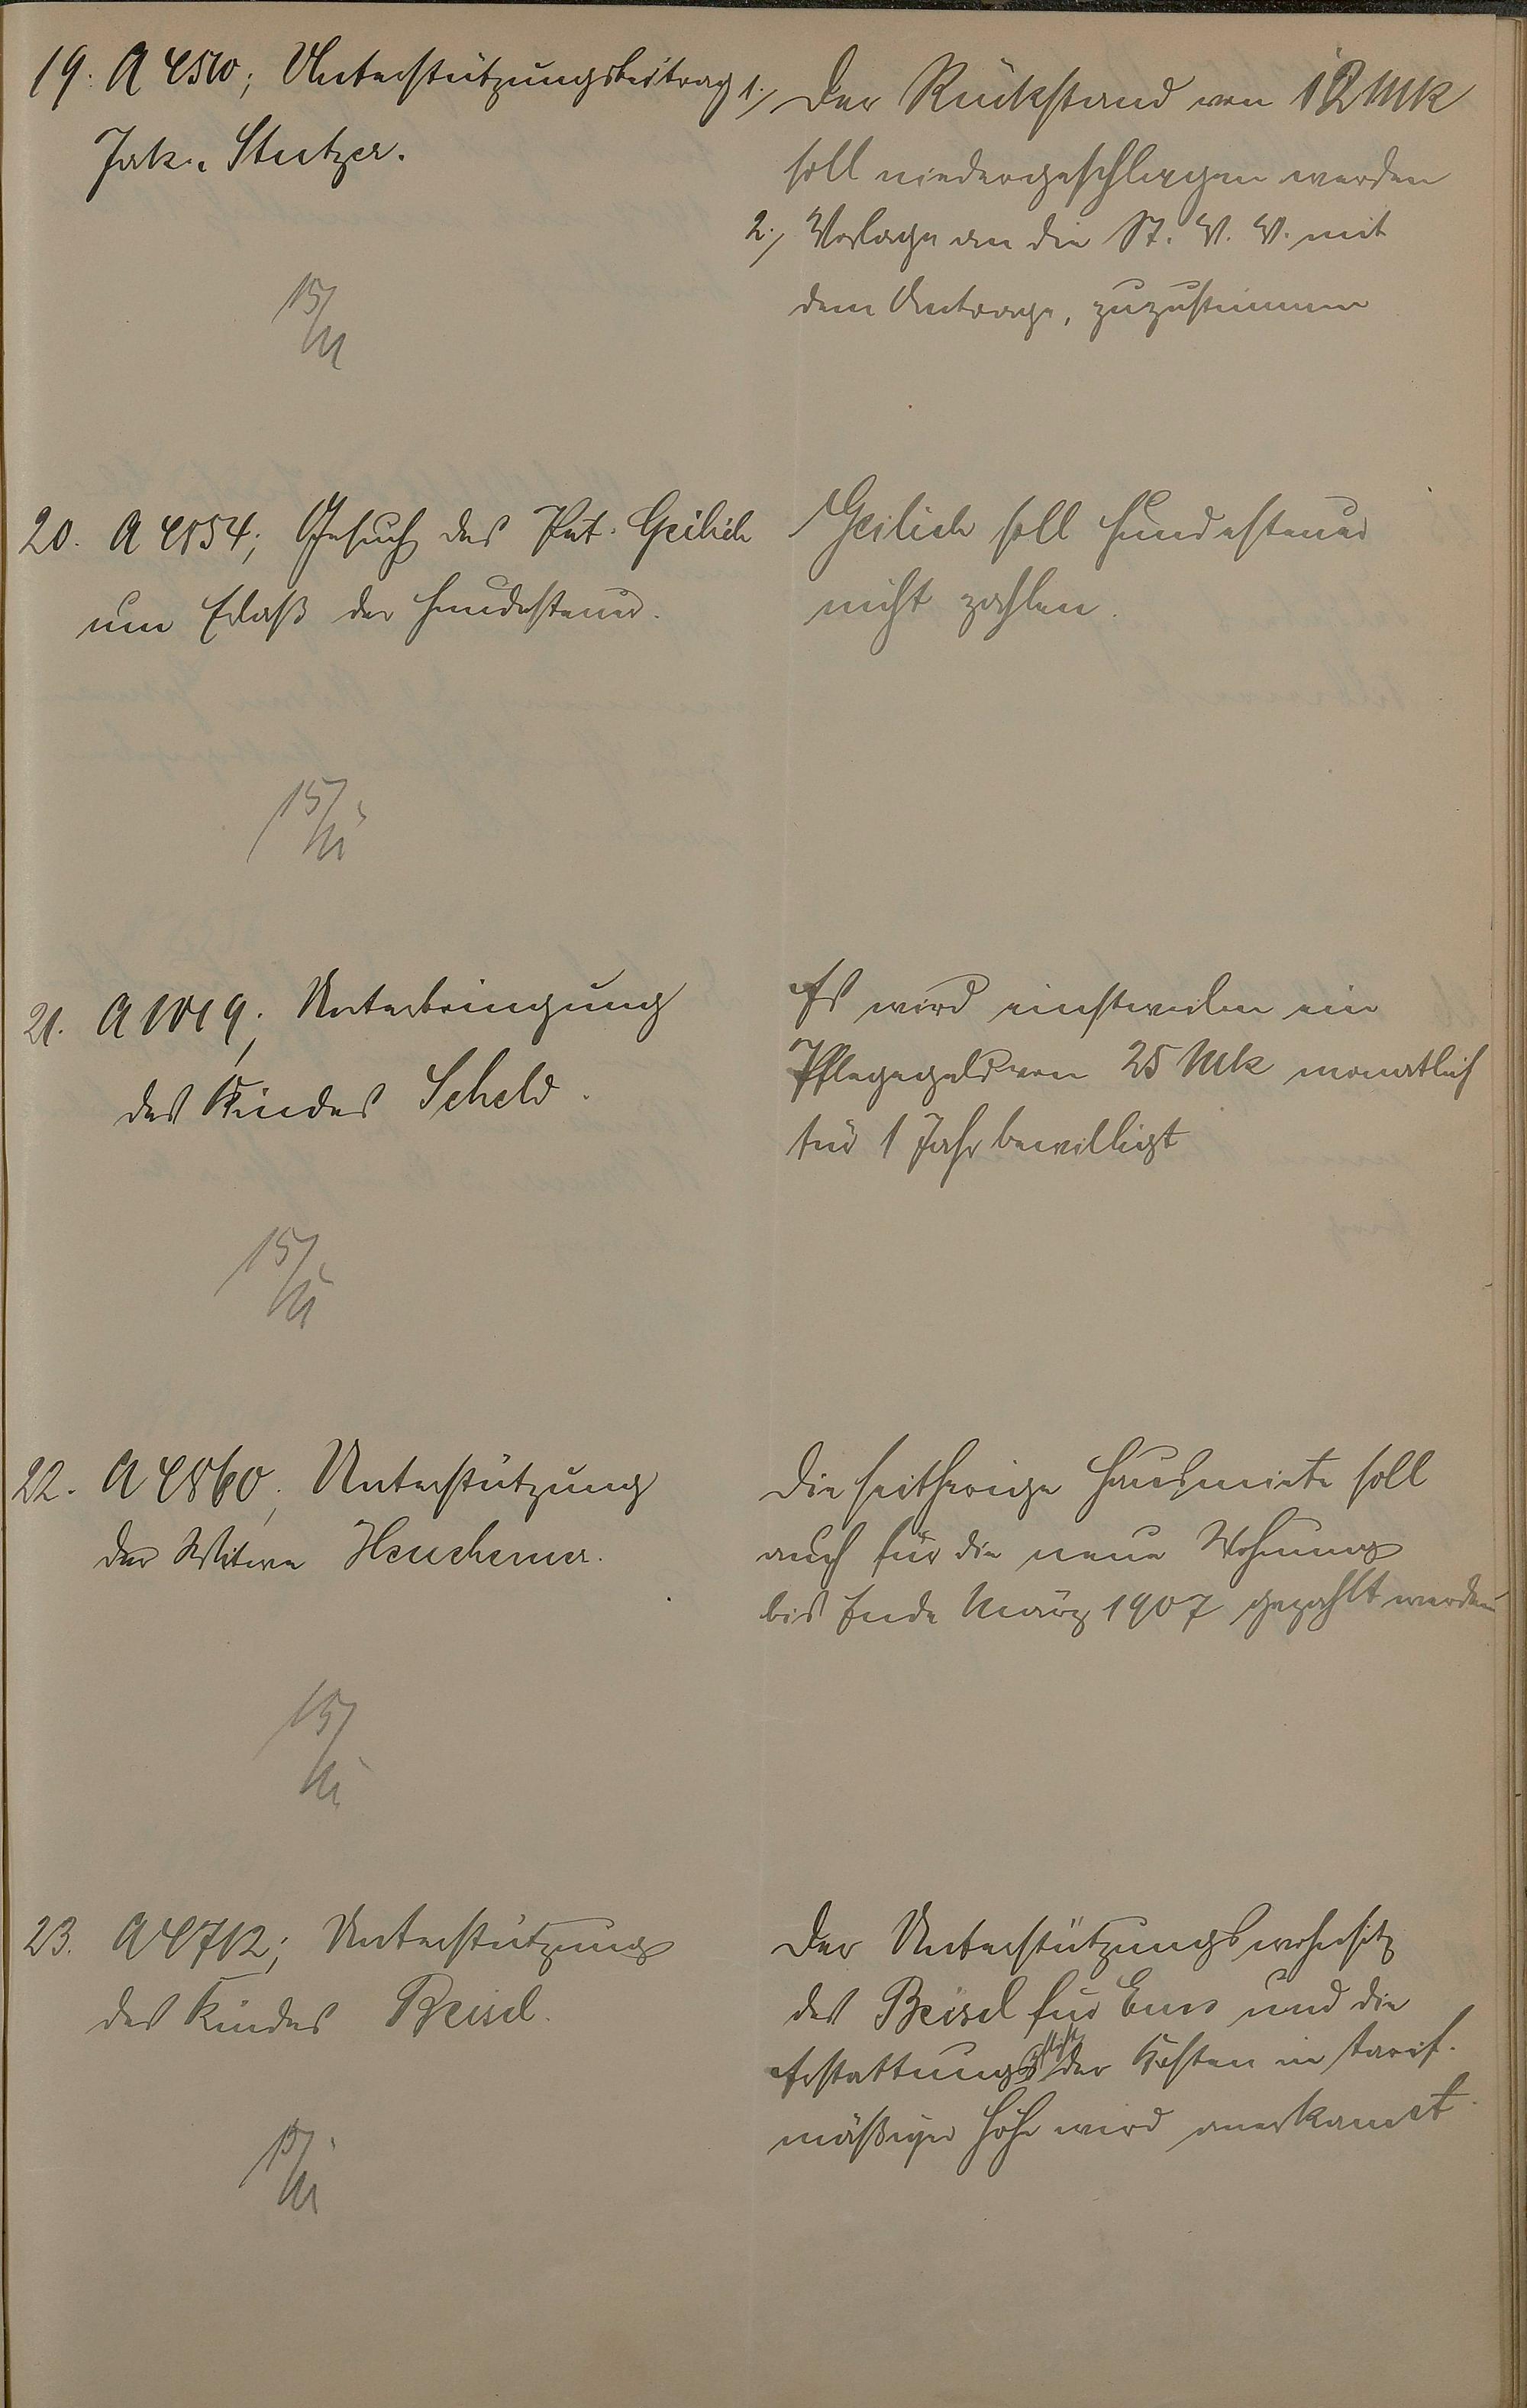 19. A 4510; Unterstützungsbeitrag
Jak. Stutzer.
1./ Der Rückstand von 12 Mk
soll niedergeschlagen werden
2./ Vorlage an die St. V. V. mit
dem Antrage, zuzustimmen
15/
III
20. A 4854; Gesuch des Pet. Geilich
um Erlaß der Hundesteuer.
Geilich soll Hundesteuer
nicht zahlen.
15/
III
21. A 1019; Unterbringung
des Kindes Scheld.
Es wird einstweilen ein
Pflegegeld von 25 Mk monatlich
für 1 Jahr bewilligt
15/
III
22. A 4860; Unterstützung
der Witwe Heuchemer.
Die seitherige Hausmiete soll
auch für die neue Wohnung
bis Ende März 1907 gezahlt werden
15/
III
23. A 4712; Unterstützung
des Kindes Beisel.
Der Unterstützungswohnsitz
des Beisel für Ems und die
Erstattungspflicht der Kosten in tarif-
mäßiger Höhe wird anerkannt.
15/
III